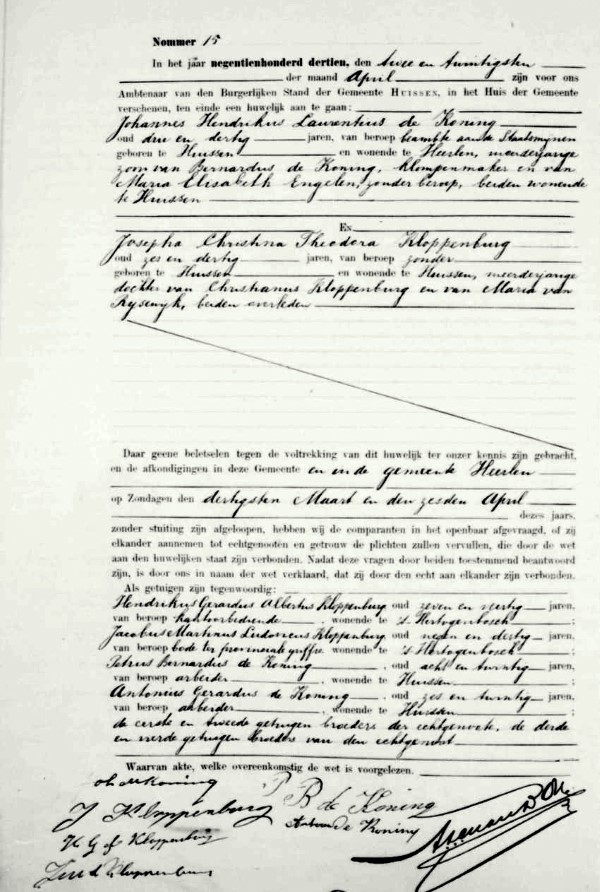 Nommer 15
In het jaar negentienhonderd dertien, den twee en twintigsten
der maand April zijn voor ons
Ambtenaar van den Burgerlijken Stand der Gemeente HUISSEN, in het Huis der Gemeente
verschenen, ten einde een huwelijk aan te gaan:
Johannes Hendrikus Laurentius de Koning
oud drie en dertig jaren, van beroep beambte aan de Staatsmijnen
geboren te Huissen en wonende te Heerlen, meerderjarige
zoon van Bernardus de Koning, klompenmaker en van
Maria Elisabeth Engelen, zonder beroep, beiden wonende
te Huissen
EN
Josepha Christina Theodora Kloppenburg
oud zes en dertig jaren, van beroep zonder
geboren te Huissen en wonende te Huissen, meerderjarige
dochter van Christianus Kloppenburg en van Maria van
Rijswijk, beiden overleden
Daar geene beletselen tegen de voltrekking van dit huwelijk ter onzer kennis zijn gebracht,
en de afkondigingen in deze Gemeente en in de gemeente Heerlen
op Zondagen den dertigsten Maart en den zesden April
dezes jaars,
zonder stuiting zijn afgeloopen, hebben wij de comparanten in het openbaar afgevraagd, of zij
elkander aannemen tot echtgenooten en getrouw de plichten zullen vervullen, die door de wet
aan den huwelijken staat zijn verbonden. Nadat deze vragen door beiden toestemmend beantwoord
zijn, is door ons in naam der wet verklaard, dat zij door den echt aan elkander zijn verbonden.
Als getuigen zijn tegenwoordig:
Hendrikus Gerardus Albertus Kloppenburg oud zeven en veertig jaren,
van beroep kantoorbediende, wonende te 's Hertogenbosch;
Jacobus Martinus Ludovicus Kloppenburg oud negen en dertig jaren,
van beroep bode ter provinciale griffie wonende te 's Hertogenbosch;
Petrus Bernardus de Koning, oud acht en twintig jaren,
van beroep arbeider, wonende te Huissen;
Antonius Gerardus de Koning, oud zes en twintig jaren,
van beroep arbeider, wonende te Huissen;
de eerste en tweede getuigen broeders der echtgenoote, de derde
en vierde getuigen broeders van den echtgenoot
Waarvan akte, welke overeenkomstig de wet is voorgelezen.
de Koning
J Kloppenburg P B de Koning
H G A Kloppenburg Antoon de Koning
Kloppenburg